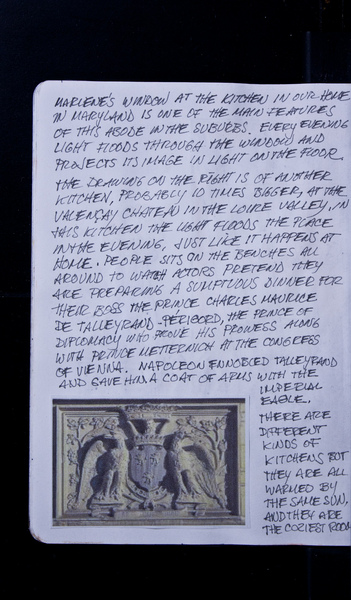 MARLENE'S WINDOW AT THE KITCHEN IN OUR HOME
IN MARYLAND IS ONE OF THE MAIN FEATURES
OF THIS ABODE IN THE SUBURBS. EVERY EVENING
LIGHT FLOODS THROUGH THE WINDOW AND
PROJECTS ITS IMAGE IN LIGHT ON THE FLOOR.
THE DRAWING ON THE RIGHT IS OF ANOTHER
KITCHEN, PROBABLY 10 TIMES BIGGER, AT THE
VALENÇAY CHATEAU IN THE LOIRE VALLEY. IN
THIS KITCHEN THE LIGHT FLOODS THE PLACE
IN THE EVENING, JUST LIKE IT HAPPENS AT
HOME. PEOPLE SITS ON THE BENCHES ALL
AROUND TO WATCH ACTORS PRETEND THEY
ARE PREPARING A SUMPTUOUS DINNER FOR
THEIR BOSS THE PRINCE CHARLES MAURICE
DE TALLEYRAND-PÉRIGORD, THE PRINCE OF
DIPLOMACY WHO PROVE HIS PROWESS ALONG
WITH PRINCE METTERNICH AT THE CONGRESS
OF VIENNA. NAPOLEON ENNOBLED TALLEYRAND
AND GAVE HIM A COAT OF ARMS WITH THE
IMPERIAL
EAGLE.
THERE ARE
DIFFERENT
KINDS OF
KITCHENS BUT
THEY ARE ALL
WARMED BY
THE SAME SUN,
AND THEY ARE
THE COZIEST ROOM